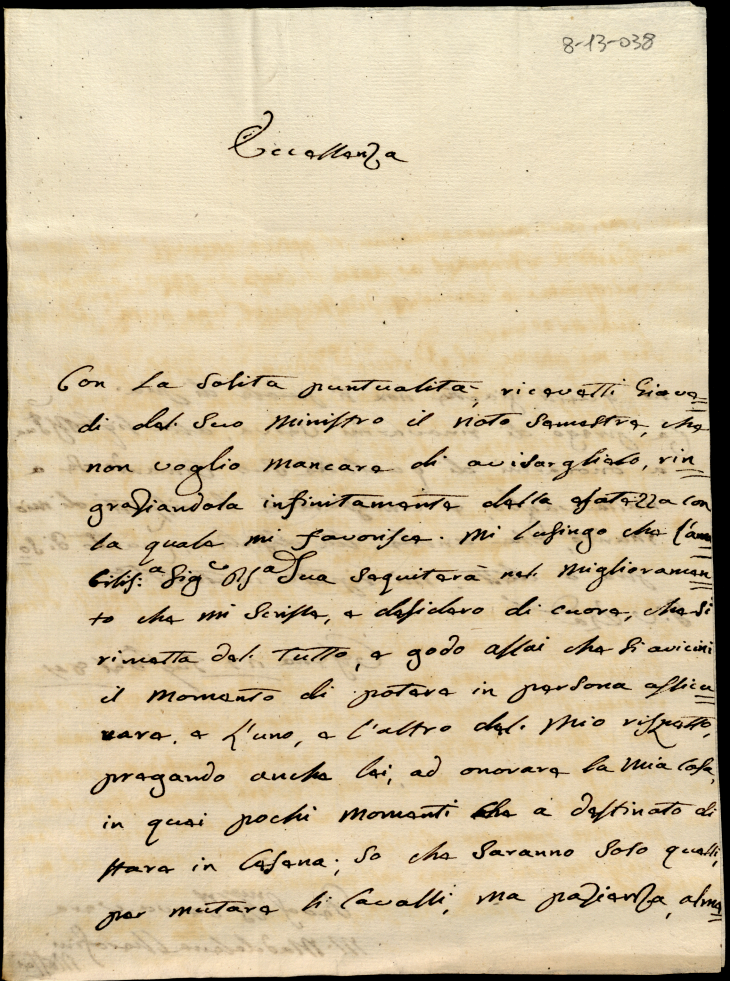 8-13-038
Eccellenza
Con la solita puntualità, ricevetti Giove=
di dal suo Ministro il noto semestre, che
non voglio mancare di avisarglielo, rin=
graziandola infinitamente della esatezza con
la quale mi favorisce. Mi lusingo che l'ama=
bilis:a Sig.ra Sua seguiterà nel miglioramen=
to che mi scrisse, e desidero di cuore, che si
rimetta del tutto, e godo assai che si avicini
il momento di potere in persona assicu=
rare, e l'uno, e l'altro del mio rispetto,
pregando anche lei, ad onorare la mia casa,
in quei pochi momenti che a destinato di
stare in Cesena; so che saranno solo quelli,
per mutare li Cavalli, ma pazienza, alme=